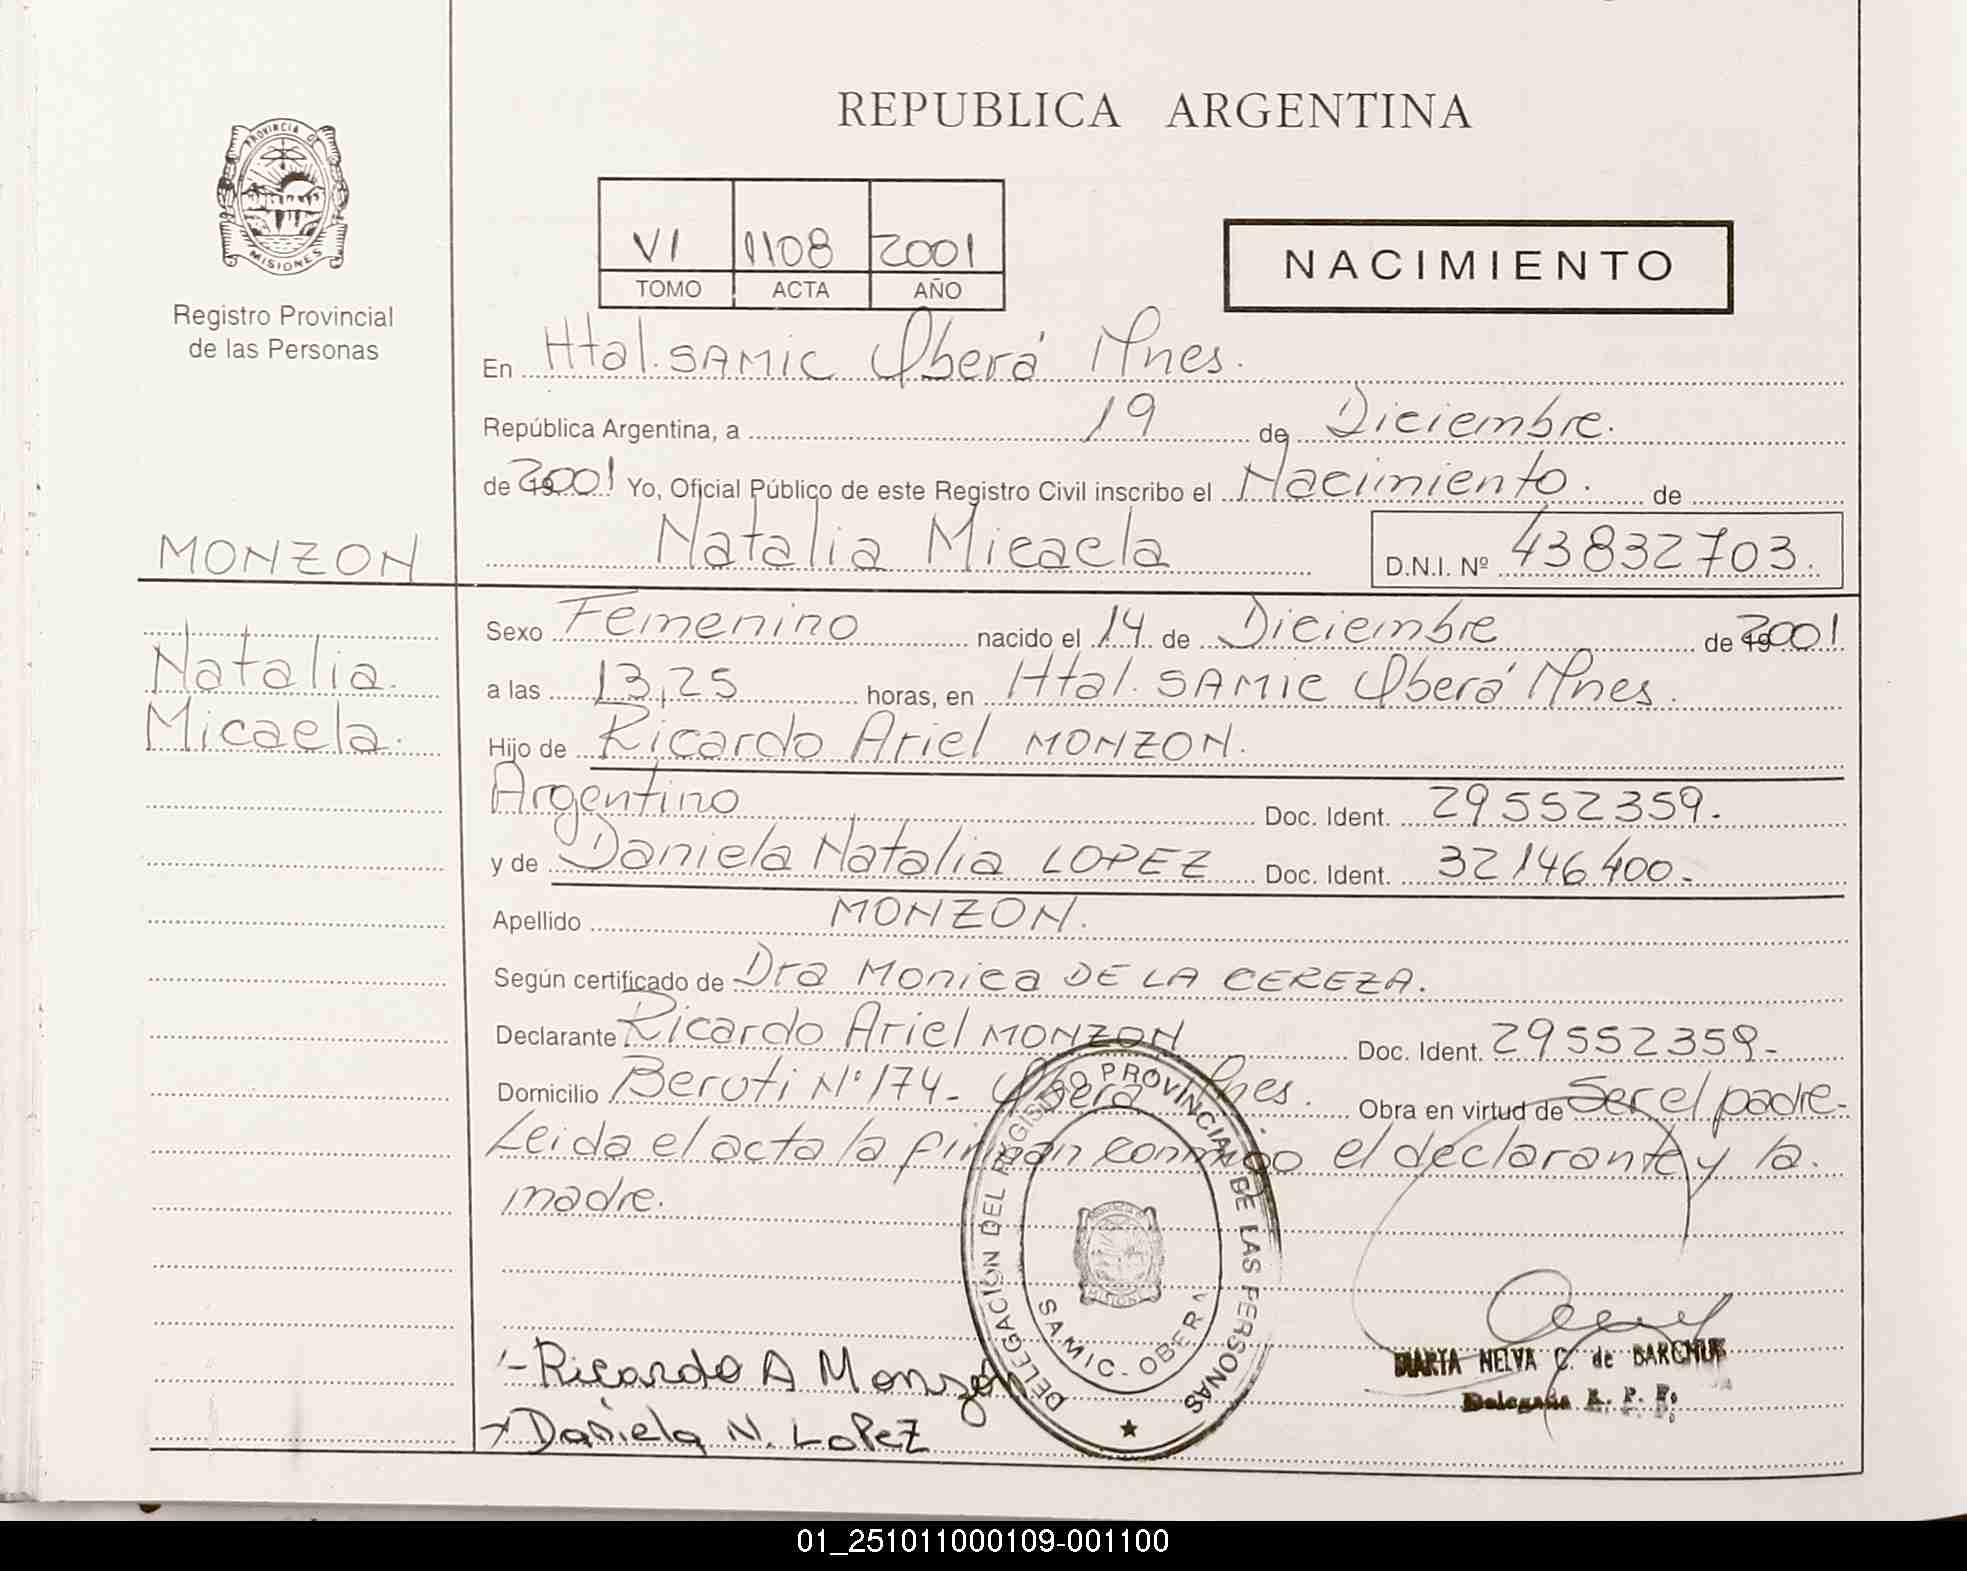 REPUBLICA ARGENTINA
PROVINCIA DE
MISIONES
Registro Provincial
de las Personas
VI 1108 2001
TOMO ACTA AÑO
NACIMIENTO
En Htal. SAMIC Oberá Mnes.
República Argentina, a 19 de Diciembre.
de 2001 Yo, Oficial Público de este Registro Civil inscribo el Nacimiento. de
MONZON
Natalia Micaela D.N.I. Nº 43832703.
Natalia
Micaela.
Sexo Femenino nacido el 14 de Diciembre de 2001
a las 13,25 horas, en Htal. SAMIC Oberá Mnes.
Hijo de Ricardo Ariel MONZON.
Argentino Doc. Ident. 29552359.
y de Daniela Natalia LOPEZ Doc. Ident. 32146400-
Apellido MONZON.
Según certificado de Dra Monica DE LA CEREZA.
Declarante Ricardo Ariel MONZON Doc. Ident. 29552359-
Domicilio Beruti Nº 174- Oberá Mnes. Obra en virtud de Ser el padre-
Leida el acta la firman conmigo el declarante y la
madre.
DELEGACIÓN DEL REGISTRO PROVINCIAL DE LAS PERSONAS
SAMIC - OBERA
MISIONES
-Ricardo A Monzón
Daniela N. LoPez
MARTA NELVA C. de BARCHUK
Delegada R. P. P.
01_251011000109-001100